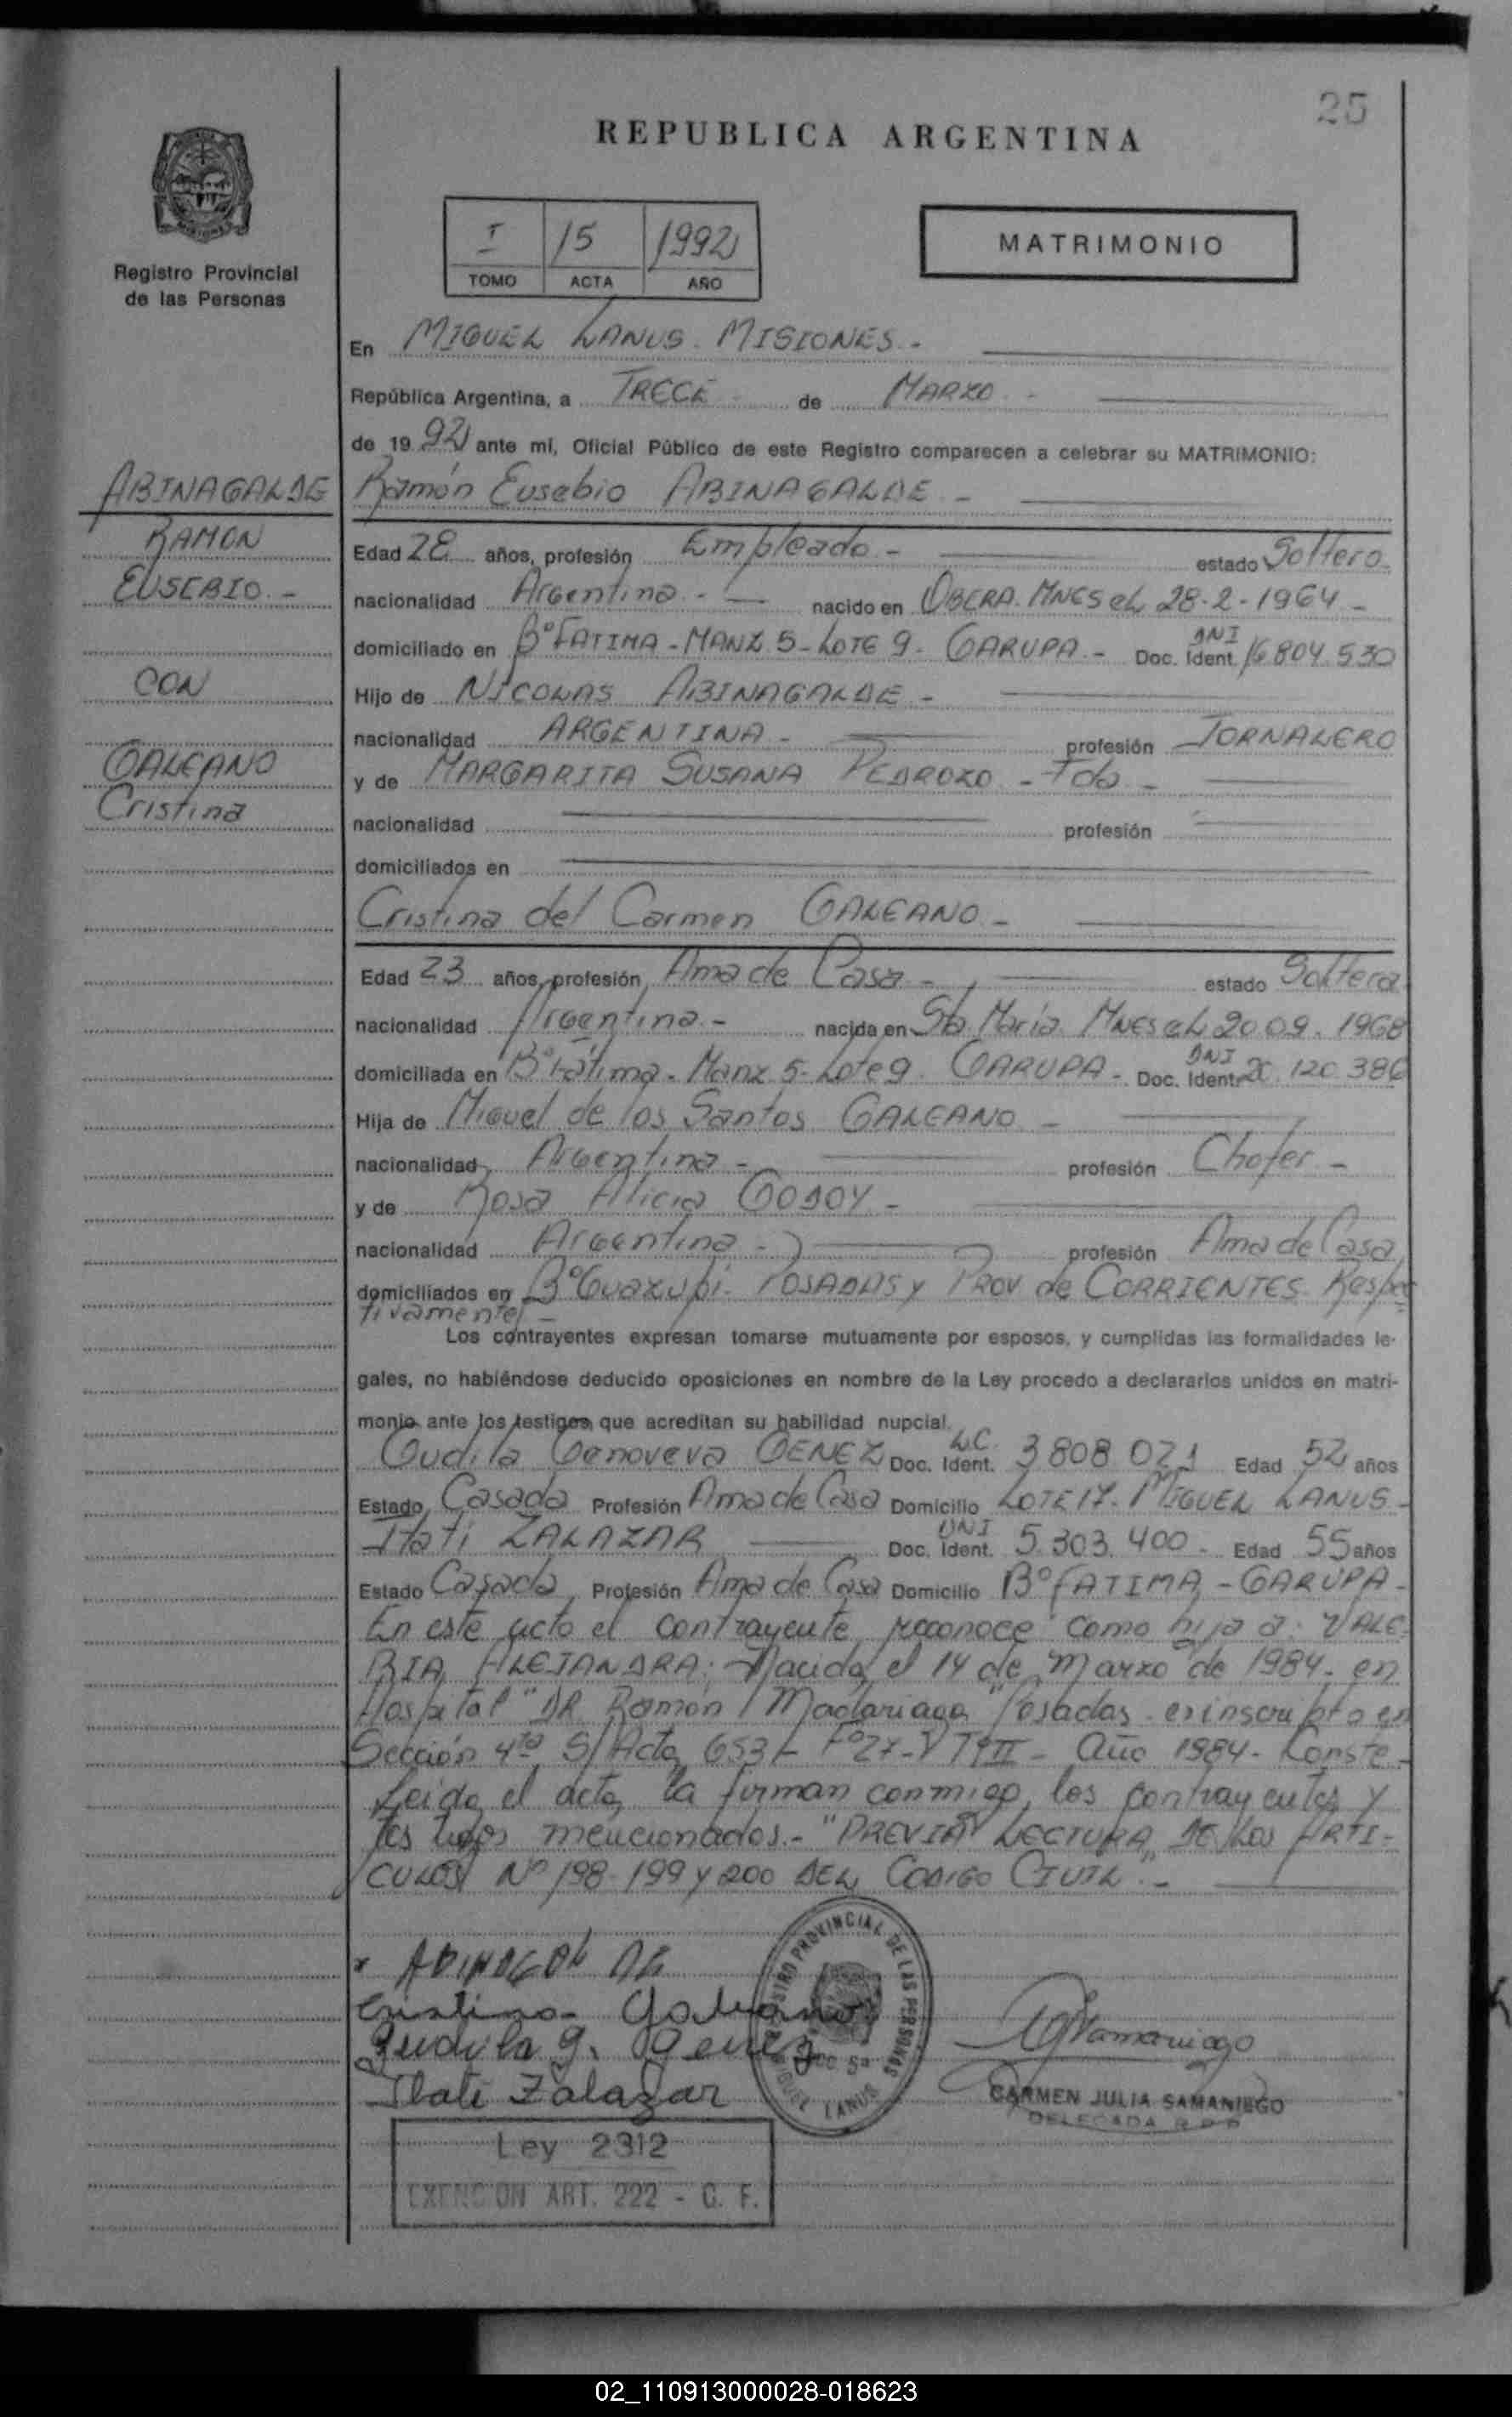 25
REPUBLICA ARGENTINA
Registro Provincial
de las Personas
I 15 1992
TOMO ACTA AÑO
MATRIMONIO
En MIGUEL LANUS. MISIONES.-
República Argentina, a TRECE de MARZO.-
de 1992 ante mí, Oficial Público de este Registro comparecen a celebrar su MATRIMONIO:
ABINAGALDE
RAMON
EUSEBIO.-
CON
GALEANO
Cristina
Ramón Eusebio ABINAGALDE -
Edad 28 años, profesión Empleado - estado Soltero-
nacionalidad Argentina.- nacido en OBERA. MNES el 28-2-1964-
domiciliado en B° FATIMA - MANZ 5 - LOTE 9. GARUPA.- Doc. Ident. DNI 16 804 530
Hijo de NICOLAS ABINAGALDE -
nacionalidad ARGENTINA - profesión JORNALERO
y de MARGARITA SUSANA PEDROZO - Fda -
nacionalidad profesión
domiciliados en
Cristina del Carmen GALEANO -
Edad 23 años, profesión Ama de Casa - estado Soltera
nacionalidad Argentina.- nacida en Sta María. MNES el 20.09.1968
domiciliada en B° Fátima. Manz 5-Lote 9. GARUPA - Doc. Ident. DNI 20.120.386
Hija de Miguel de los Santos GALEANO -
nacionalidad Argentina - profesión Chofer -
y de Rosa Alicia GODOY -
nacionalidad Argentina - profesión Ama de Casa
domiciliados en B° Guazupi. POSADAS y PROV de CORRIENTES. Respec
tivamente -
Los contrayentes expresan tomarse mutuamente por esposos, y cumplidas las formalidades le-
gales, no habiéndose deducido oposiciones en nombre de la Ley procedo a declararlos unidos en matri-
monio ante los testigos que acreditan su habilidad nupcial.
Gudila Genoveva GENEZ Doc. Ident. L.C. 3 808 021 Edad 52 años
Estado Casada Profesión Ama de Casa Domicilio LOTE 17. MIGUEL LANUS -
Itati ZALAZAR Doc. Ident. DNI 5.303.400 - Edad 55 años
Estado Casada Profesión Ama de Casa Domicilio B° FATIMA - GARUPA -
En este acto el contrayente reconoce como hija a: VALE-
RIA ALEJANDRA: Nacida el 14 de Marzo de 1984. en
Hospital "DR Ramón Madariaga" Posadas. e inscripta en
Sección 4ta S/ Acta 653 - F° 27 - T° II - Año 1984 - Conste -
Leida el acta, la firman conmigo, los contrayentes y
tes tigos mencionados.- "PREVIA LECTURA DE LOS ARTI-
CULOS N° 198-199 y 200 DEL CODIGO CIVIL".-
Cristina Galeano
Gudila G. Genez
Itati Zalazar
REGISTRO PROVINCIAL DE LAS PERSONAS
MIGUEL LANUS
Samaniego
CARMEN JULIA SAMANIEGO
DELEGADA R.P.P
Ley 2312
EXENCION ART. 222 - C. F.
02_110913000028-018623